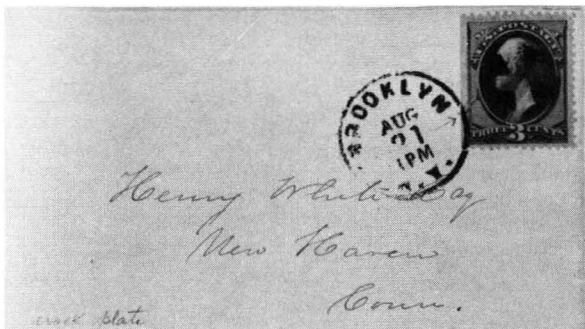 U.S. POSTAGE
THREE 3 CENTS
BROOKLYN
AUG
21
1PM
N.Y.
Henry White
New Haven
Conn.
crack plate